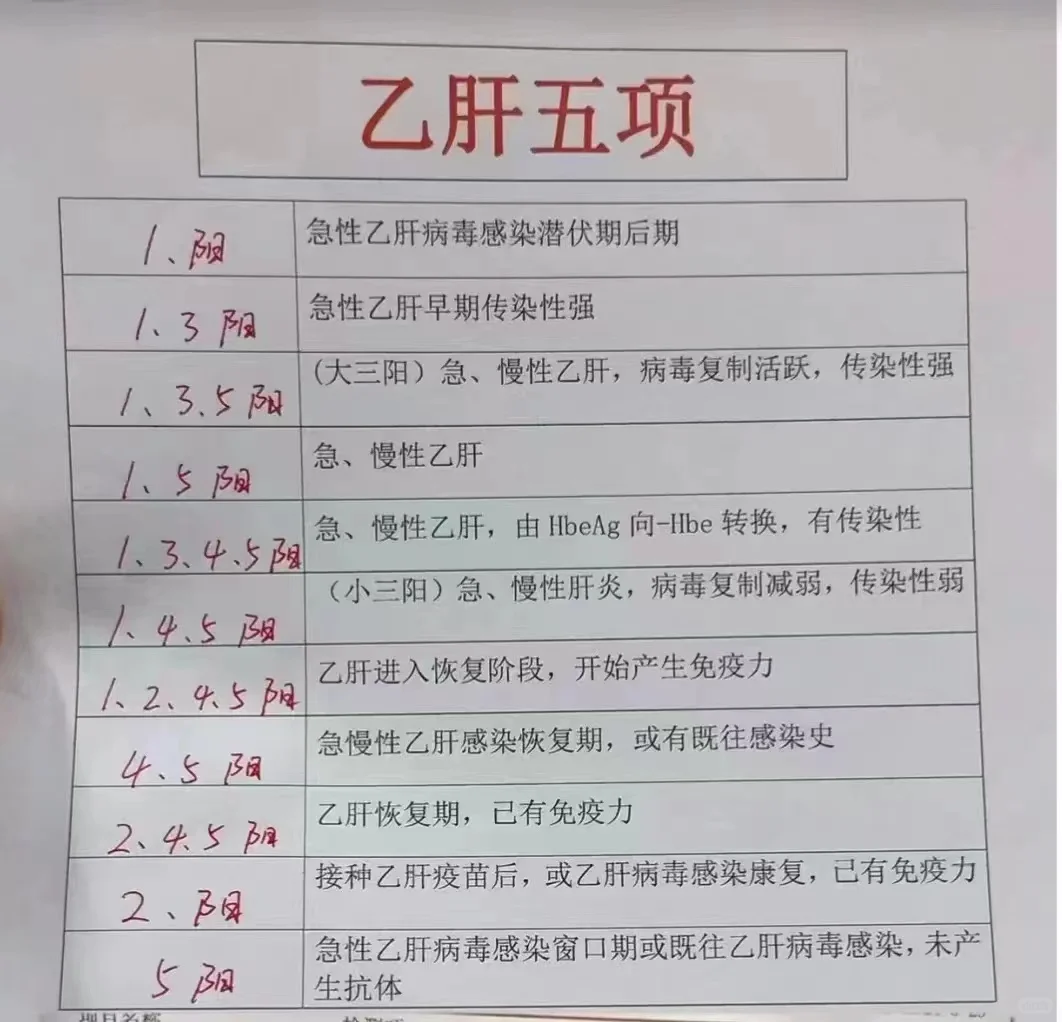 乙肝五项
1、阳
急性乙肝病毒感染潜伏期后期
1、3 阳
急性乙肝早期传染性强
1、3、5 阳
(大三阳）急、慢性乙肝，病毒复制活跃，传染性强
1、5 阳
急、慢性乙肝
1、3、4、5 阳
急、慢性乙肝，由 HbeAg 向-Hbe 转换，有传染性
1、4、5 阳
（小三阳）急、慢性肝炎，病毒复制减弱，传染性弱
1、2、4、5 阳
乙肝进入恢复阶段，开始产生免疫力
4、5 阳
急慢性乙肝感染恢复期，或有既往感染史
2、4、5 阳
乙肝恢复期，已有免疫力
2、阳
接种乙肝疫苗后，或乙肝病毒感染康复，已有免疫力
5 阳
急性乙肝病毒感染窗口期或既往乙肝病毒感染，未产
生抗体